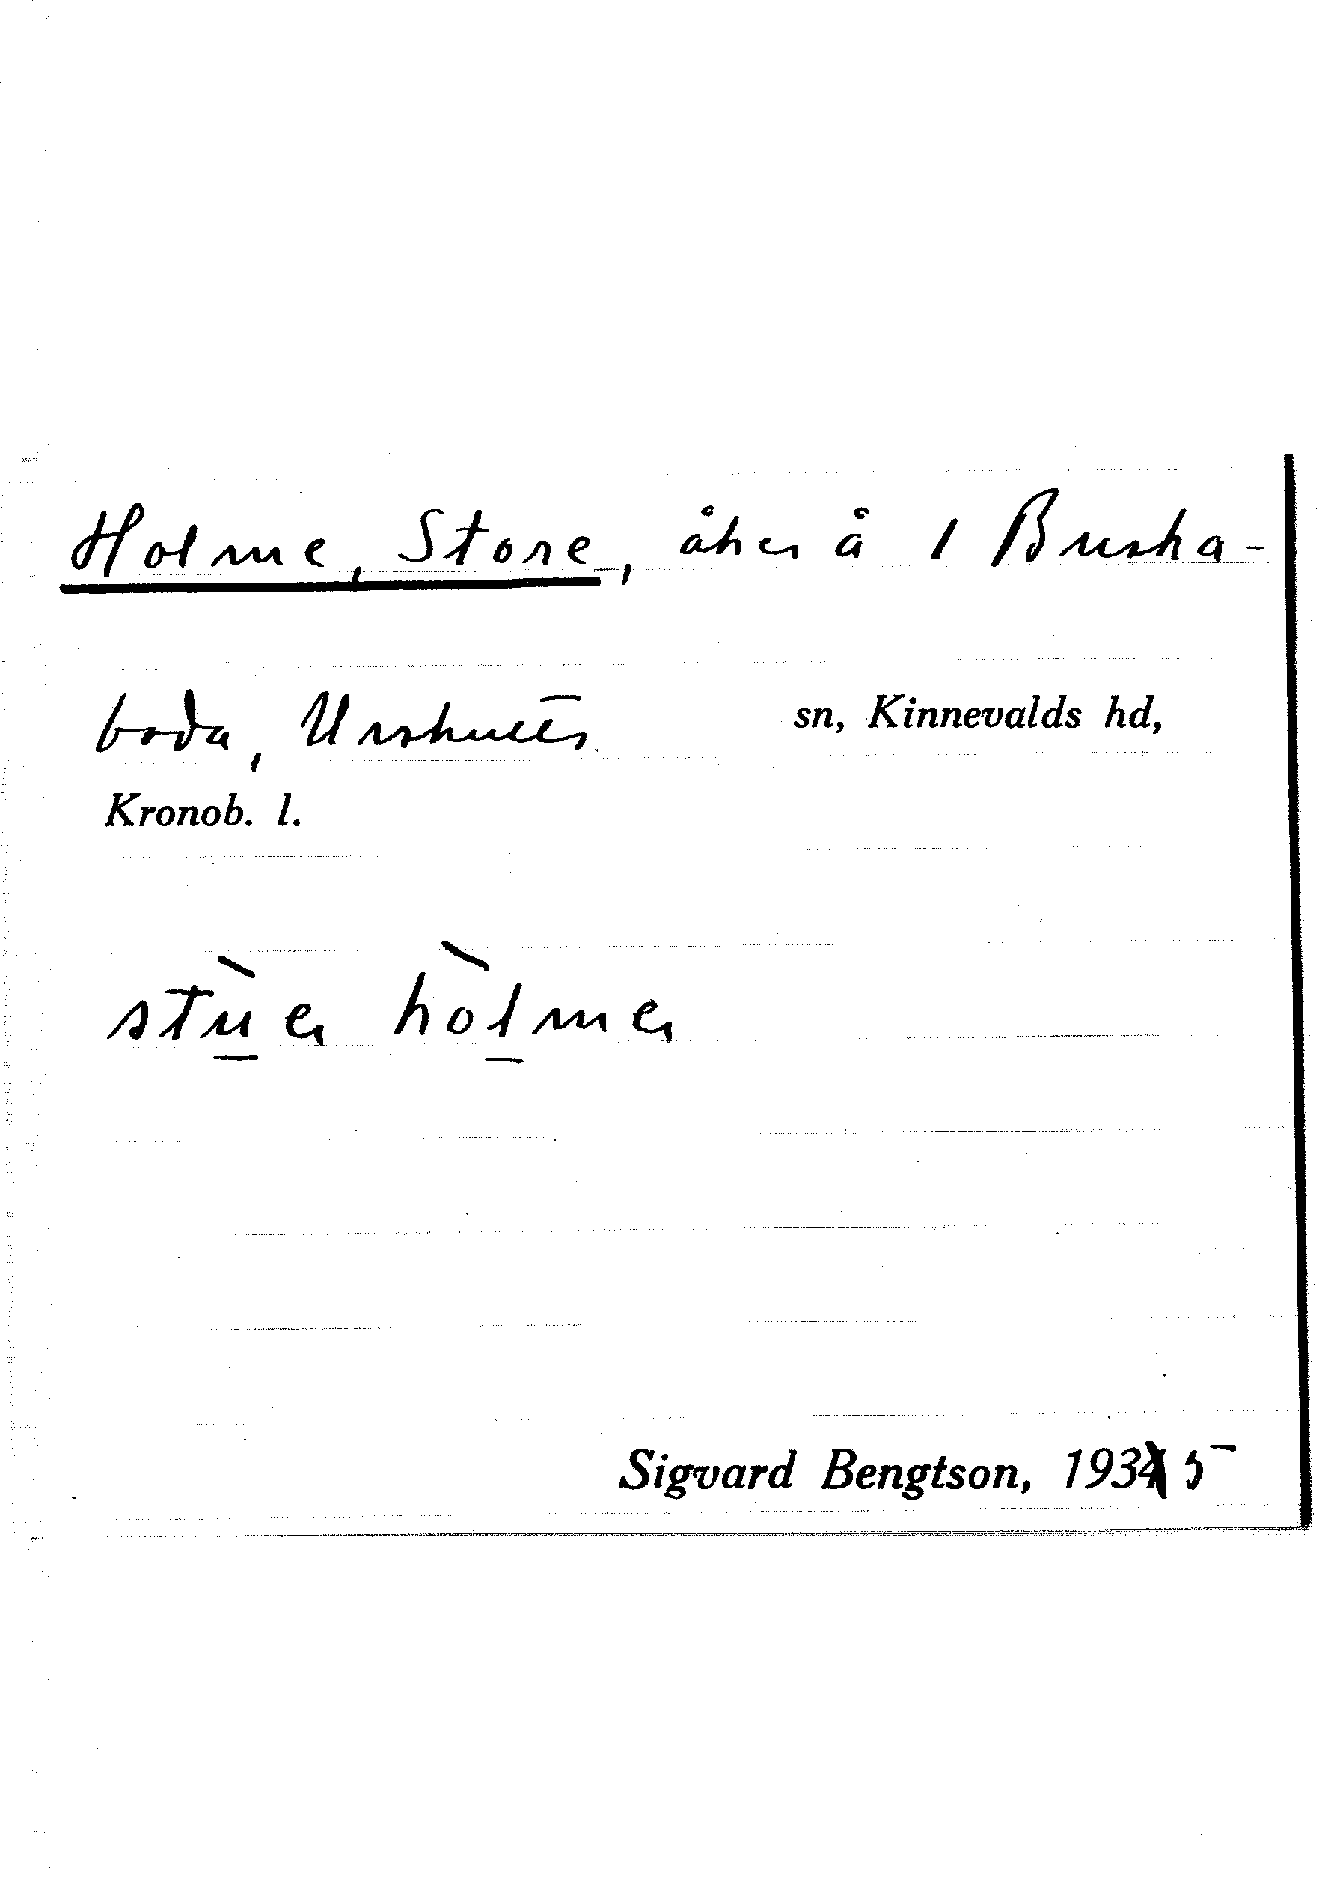 Holme, Store, åker å 1 Buska-
boda, Urshults sn, Kinnevalds hd,
Kronob. l.
stùer hòlmer
Sigvard Bengtson, 1935